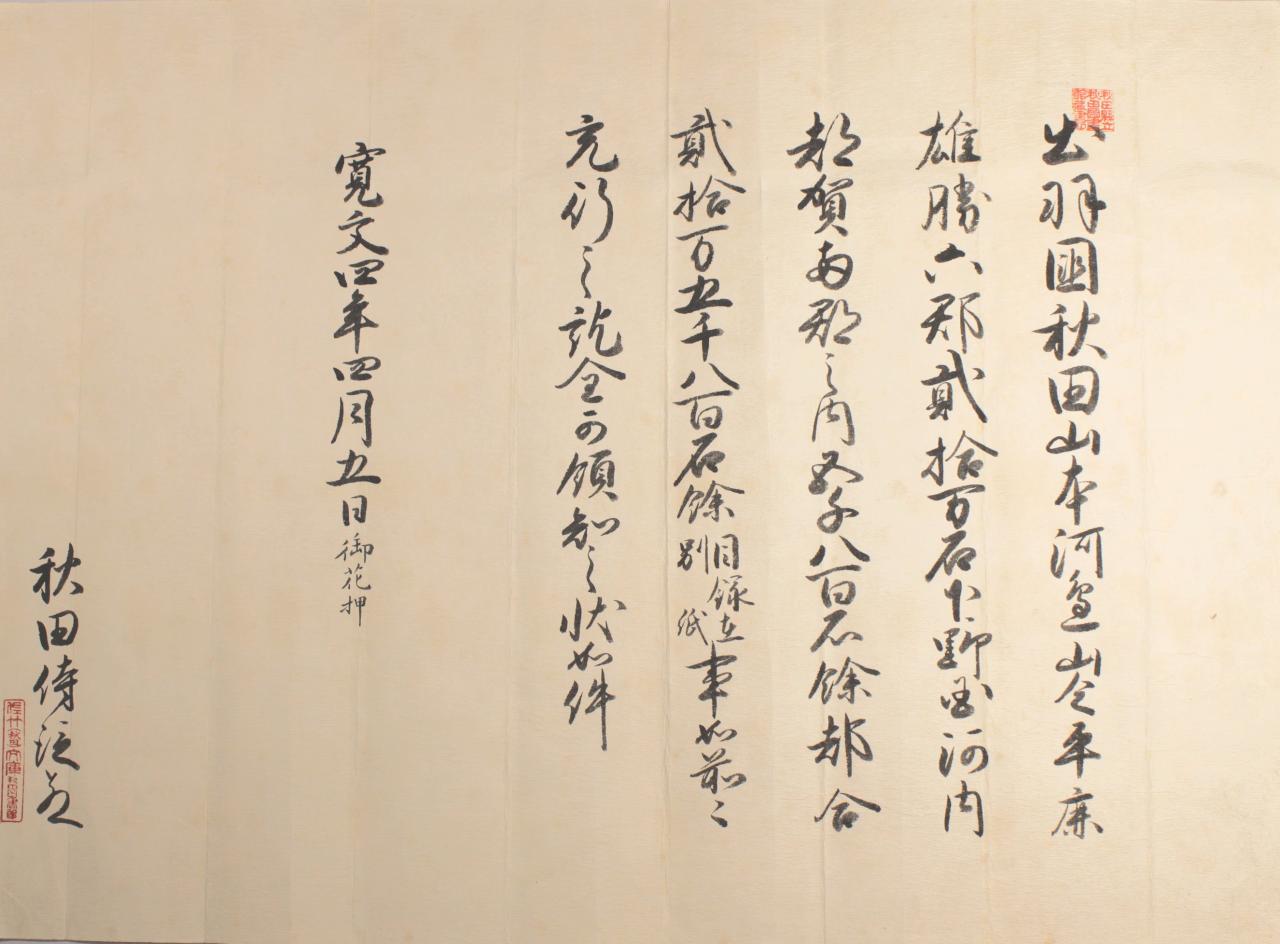 出羽國秋田山本河邊山今平鹿
雄勝六郡貳拾万石下野国河内
都賀両郡之内五千八百石余都合
貳拾万五千八百石餘目録在別紙事如前々
充行之訖全可領知之状如件
寛文四年四月五日御花押
秋田侍従とのへ